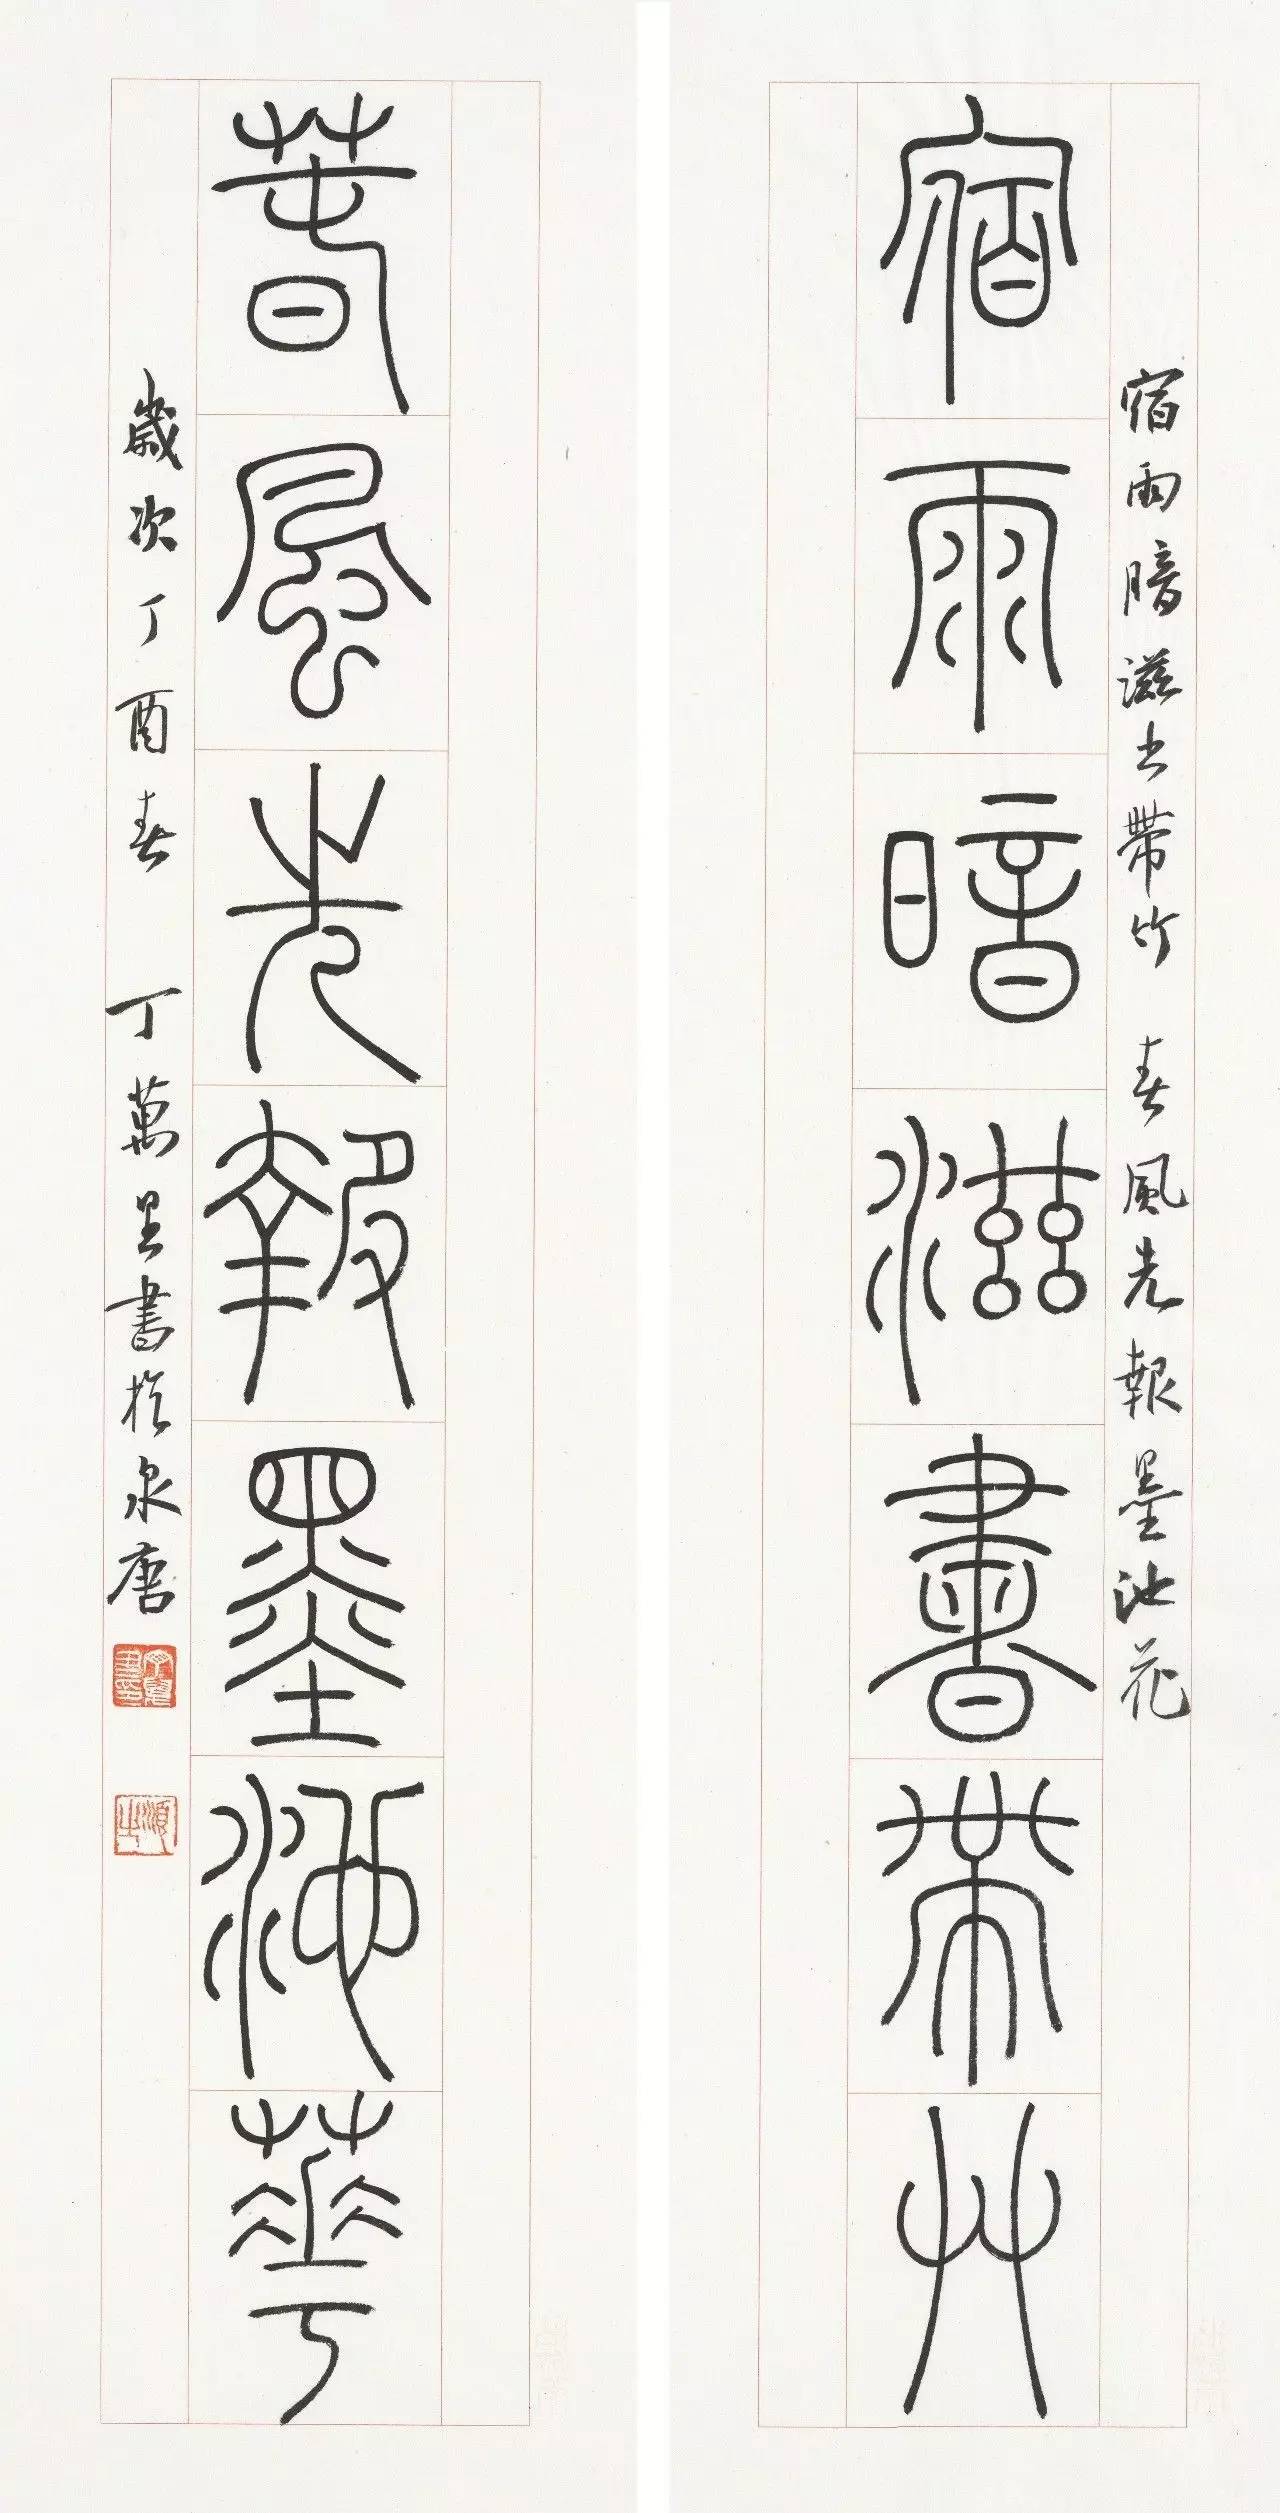 宿雨暗滋書帶艸 春風先報墨池花
宿雨暗滋書帶艸
春風先報墨池華
歲次丁酉春 丁萬里書於泉唐